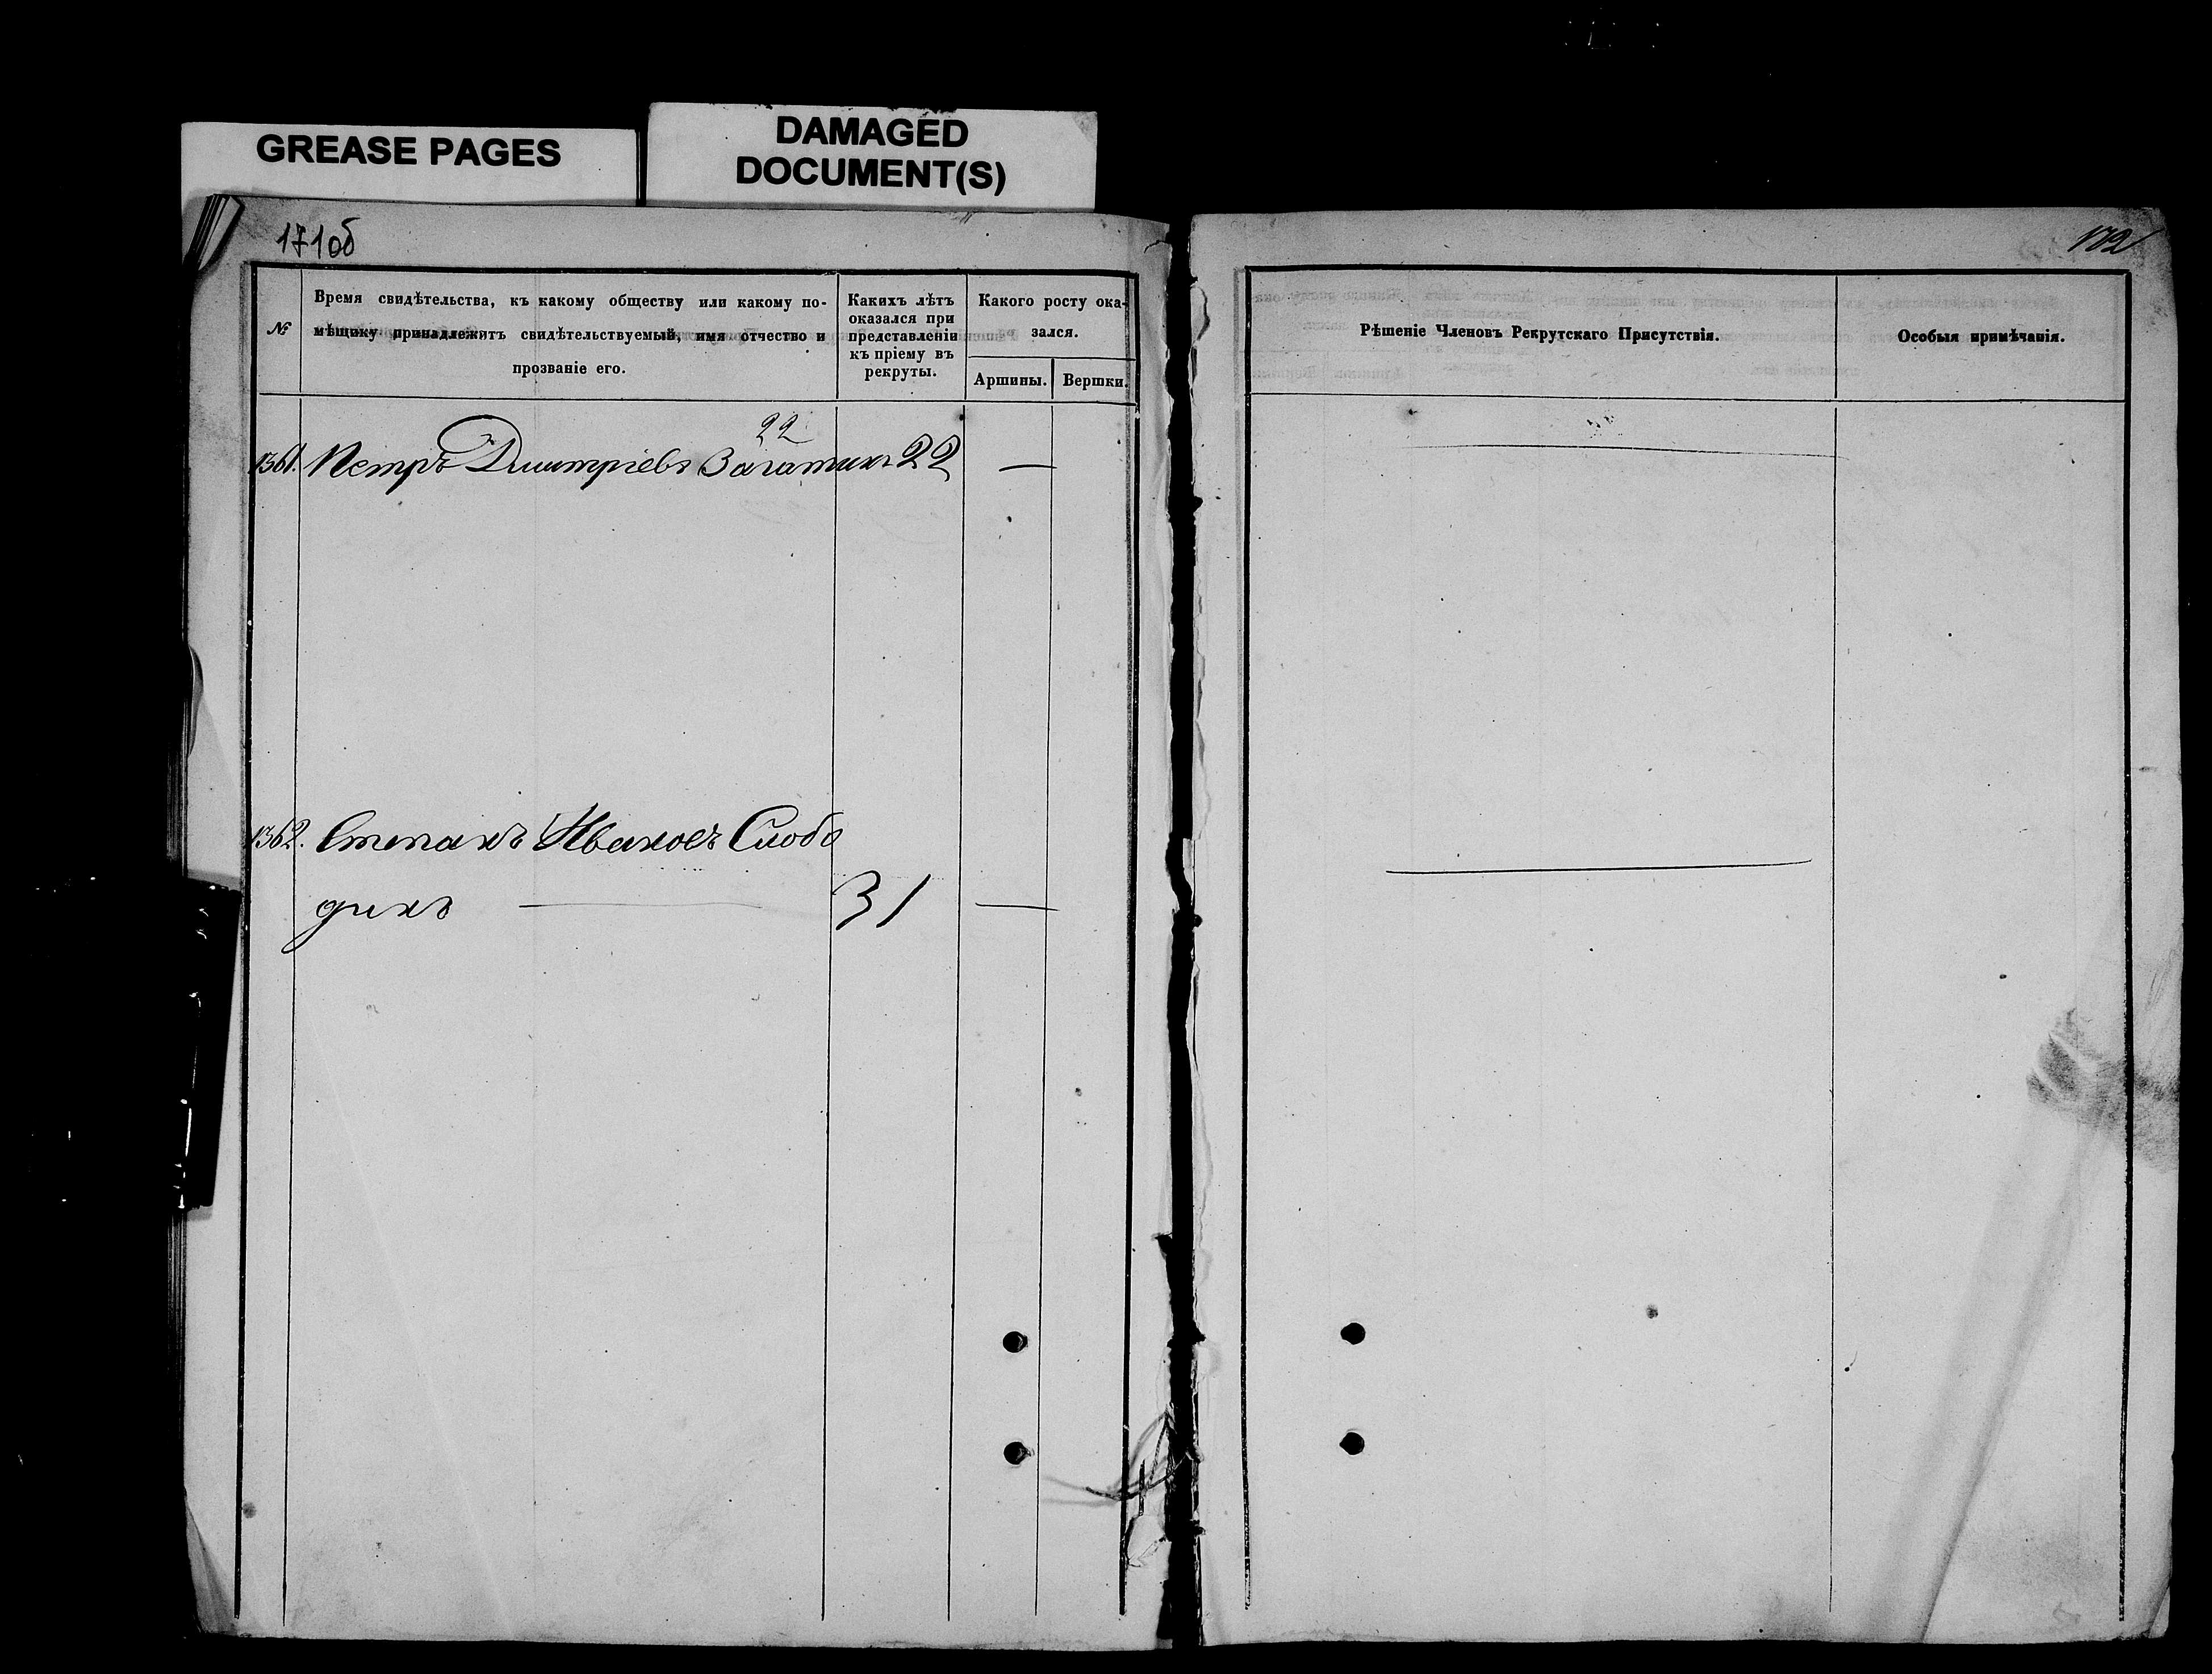 GREASE PAGES
DAMAGED
DOCUMENT(S)
171об
№
Время свидѣтельства, къ какому обществу или какому по-
мѣщику принадлежитъ свидѣтельствуемый, имя отчество и
прозваніе его.
Какихъ лѣтъ
оказался при
представленіи
къ пріему въ
рекруты.
Какого росту ока-
зался.
Аршины.
Вершки.
22
1361. Петръ Дмитріевъ 22 —
1362. Степанъ Ивановъ Слобо
динъ — 31 —
172
Рѣшеніе Членовъ Рекрутскаго Присутствія.
Особыя примѣчанія.